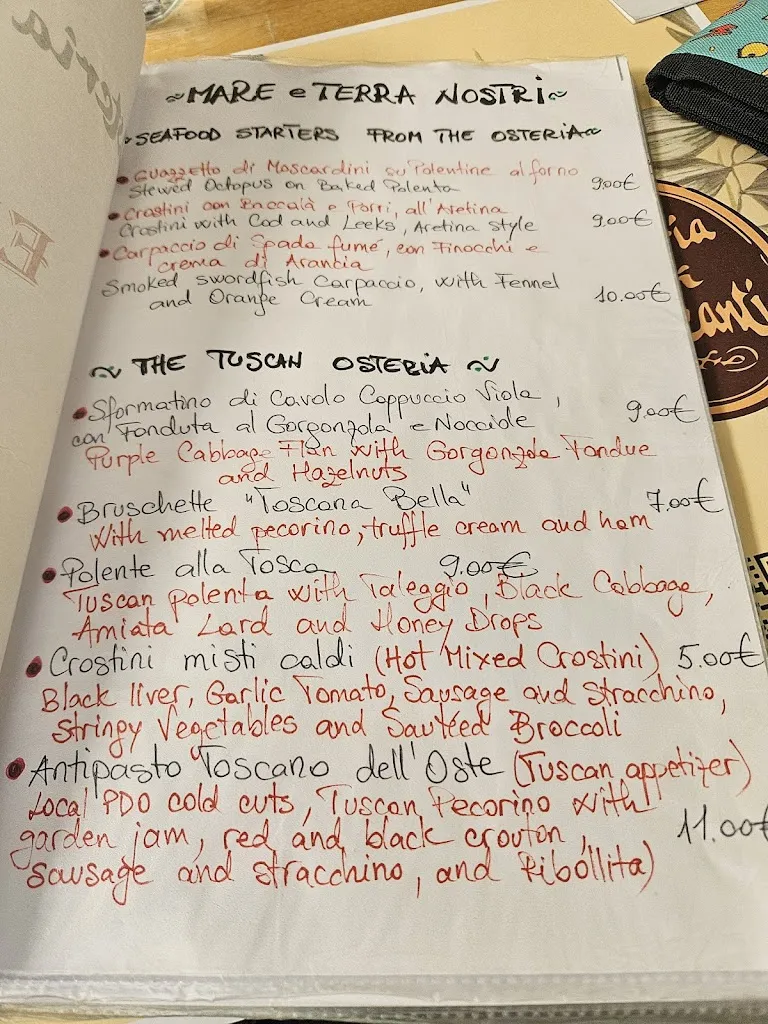 ~MARE e TERRA NOSTRI~
~SEAFOOD STARTERS FROM THE OSTERIA~
• Guazzetto di Moscardini su Polentine al forno
Stewed Octopus on Baked Polenta 9.00€
• Crostini con Baccalà e Porri, all'Aretina
Crostini with Cod and Leeks, Aretina style 9.00€
• Carpaccio di Spada fumé, con Finocchi e
crema di Arancia
Smoked swordfish Carpaccio, with Fennel
and Orange Cream 10.00€
~ THE TUSCAN OSTERIA ~
• Sformatino di Cavolo Cappuccio Viola,
con Fonduta al Gorgonzola e Nocciole 9.00€
Purple Cabbage Flan with Gorgonzola Fondue
and Hazelnuts
• Bruschette "Toscana Bella" 7.00€
With melted pecorino, truffle cream and ham
• Polente alla Tosca 9.00€
Tuscan polenta with Taleggio, Black Cabbage,
Amiata Lard and Honey Drops
• Crostini misti caldi (Hot Mixed Crostini) 5.00€
Black liver, Garlic Tomato, Sausage and Stracchino,
Stringy Vegetables and Sautéed Broccoli
• Antipasto Toscano dell'Oste (Tuscan appetizer)
Local PDO cold cuts, Tuscan Pecorino with
garden jam, red and black crouton, 11.00€
sausage and stracchino, and Ribollita)